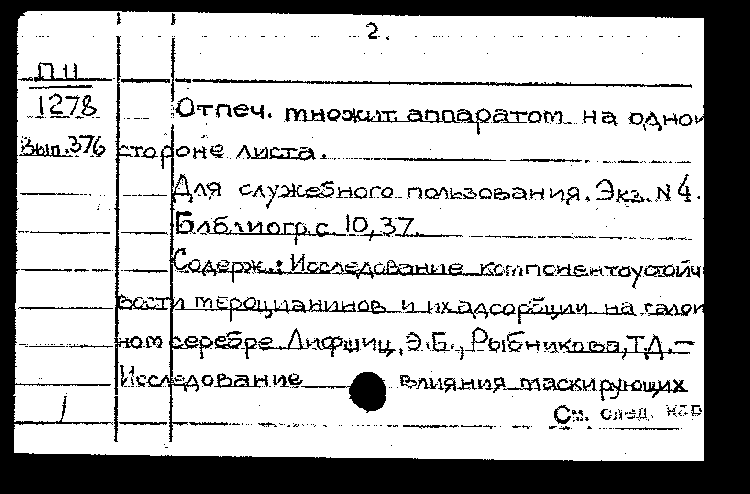 2.
П 11
1278
Отпеч. множит. аппаратом на одной
Вып.376
стороне листа.
Для служебного пользования. Экз. N 4.
Библиогр. с. 10, 37.
Содерж.: Исследование компонентоустойч
вости мероцианинов и их адсорбции на галои
ном серебре. Лифшиц, Э.Б., Рыбникова, Т.Д. –
Исследование влияния маскирующих
См. след. кар